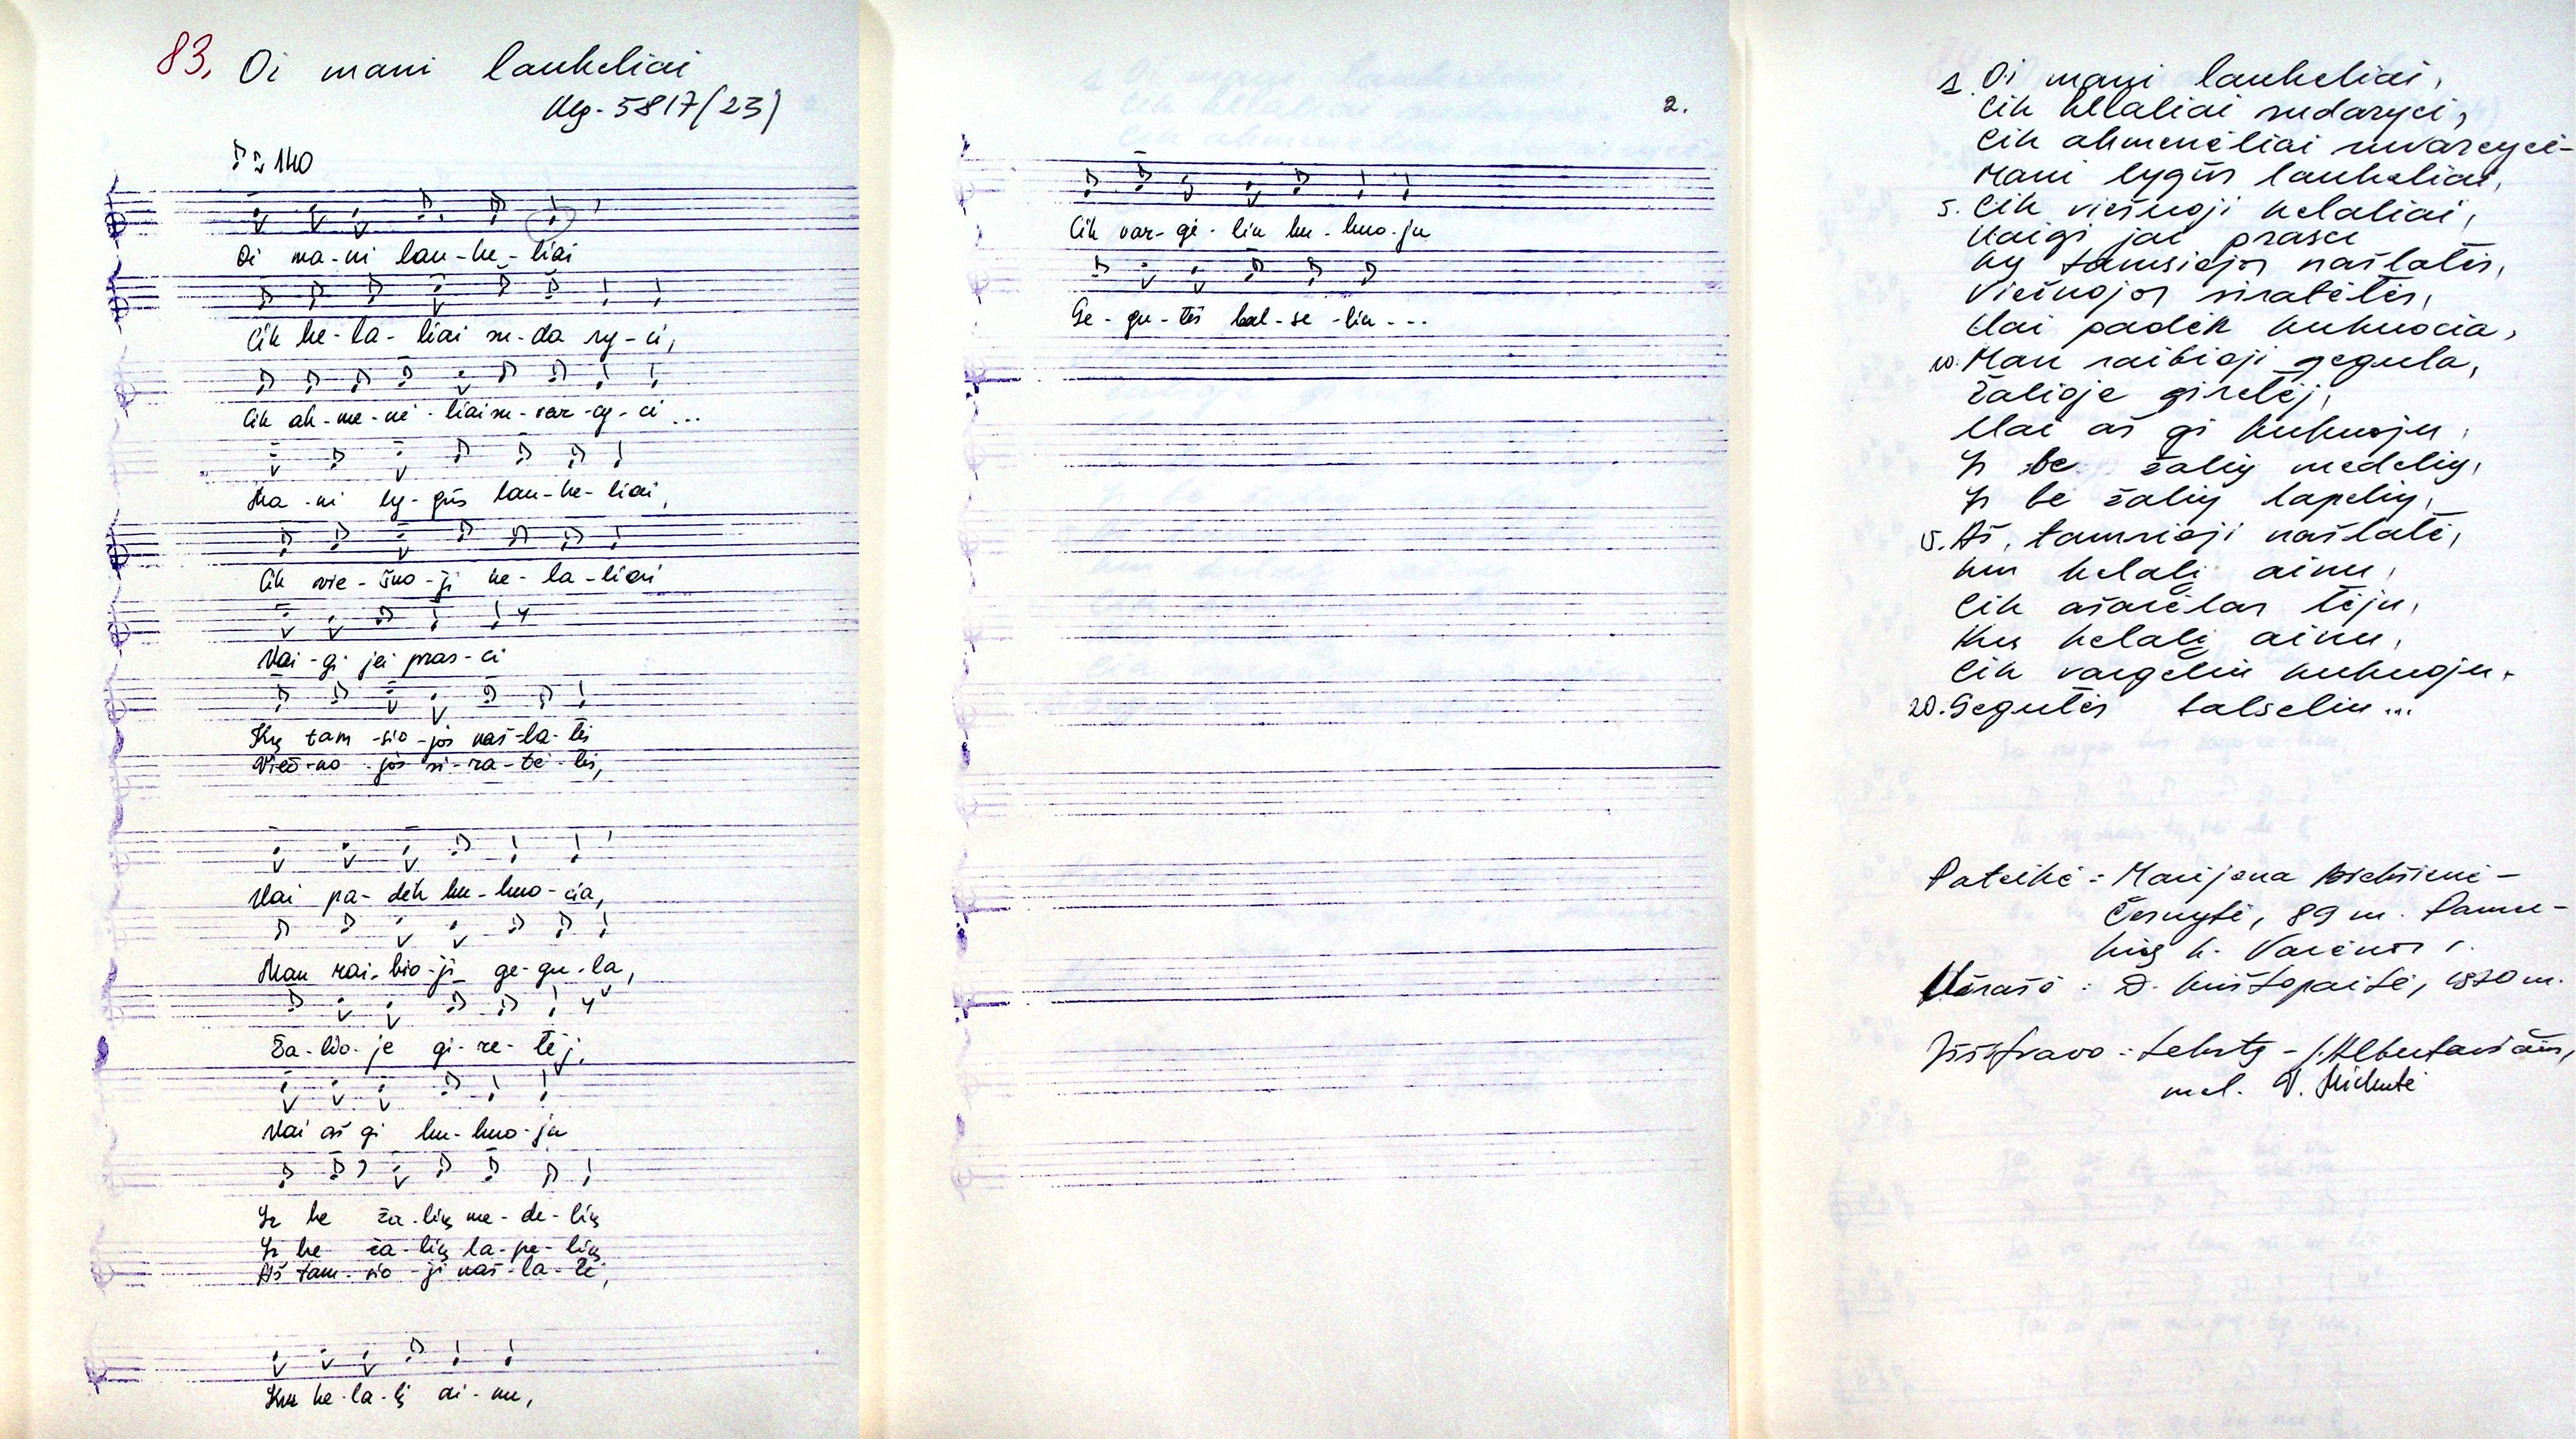 83. Oi mani laukeliai
Mg-5817(23)
♪≈140
Oi ma-ni lau-ke-liai
Cik ke-la-liai su-da ry-ci,
Cik ak-me-nė-liai su-var-cy-ci...
Ma-ni ly-gūs lau-ke-liai,
Cik vie-šno-ji ke-la-liai
Vai-gi jei pras-ci
Kų tam-sio-jos naš-la-tės
Vieš-no-jos si-ra-tė-lės,
Vai pa-dėk ku-kuo-cia,
Man rai-bio-ji ge-gu-la,
Ža-lio-je gi-re-lėj,
Vai aš gi ku-kuo-ju
Ir be ža-lių me-de-lių
Ir be ža-lių la-pe-lių
Aš tam-sio-ji naš-la-tė,
Kur ke-la-lį ai-nu,
2.
Cik var-gė-liu ku-kuo-ju
Ge-gu-tės bal-se-liu...
1. Oi mani laukeliai,
Cik kelaliai sudaryci,
Cik akmenėliai suvarcyci-
Mani lygūs laukeliai,
5. Cik viešnoji kelaliai,
Vaigi jai prasci
Kų tamsiojos našlatės,
Viešnojos siratėlės,
Vai padėk kukuocia,
10. Man raibioji gegula,
Žalioje girelėj,
Vai aš gi kukuoju,
Ir be žalių medelių,
Ir be žalių lapelių,
15. Aš, tamsioji našlatė,
Kur kelalį ainu,
Cik ašarėlas lėju,
Kur kelalį ainu,
Cik vargeliu kukuoju.
20. Gegutės balseliu...
Pateikė: Marijona
Černytė, 89 m.
k. Varėnos r.
Užrašė: D. Krištopaitė, 1970 m.
Iššifravo: tekstą -
mel. V.